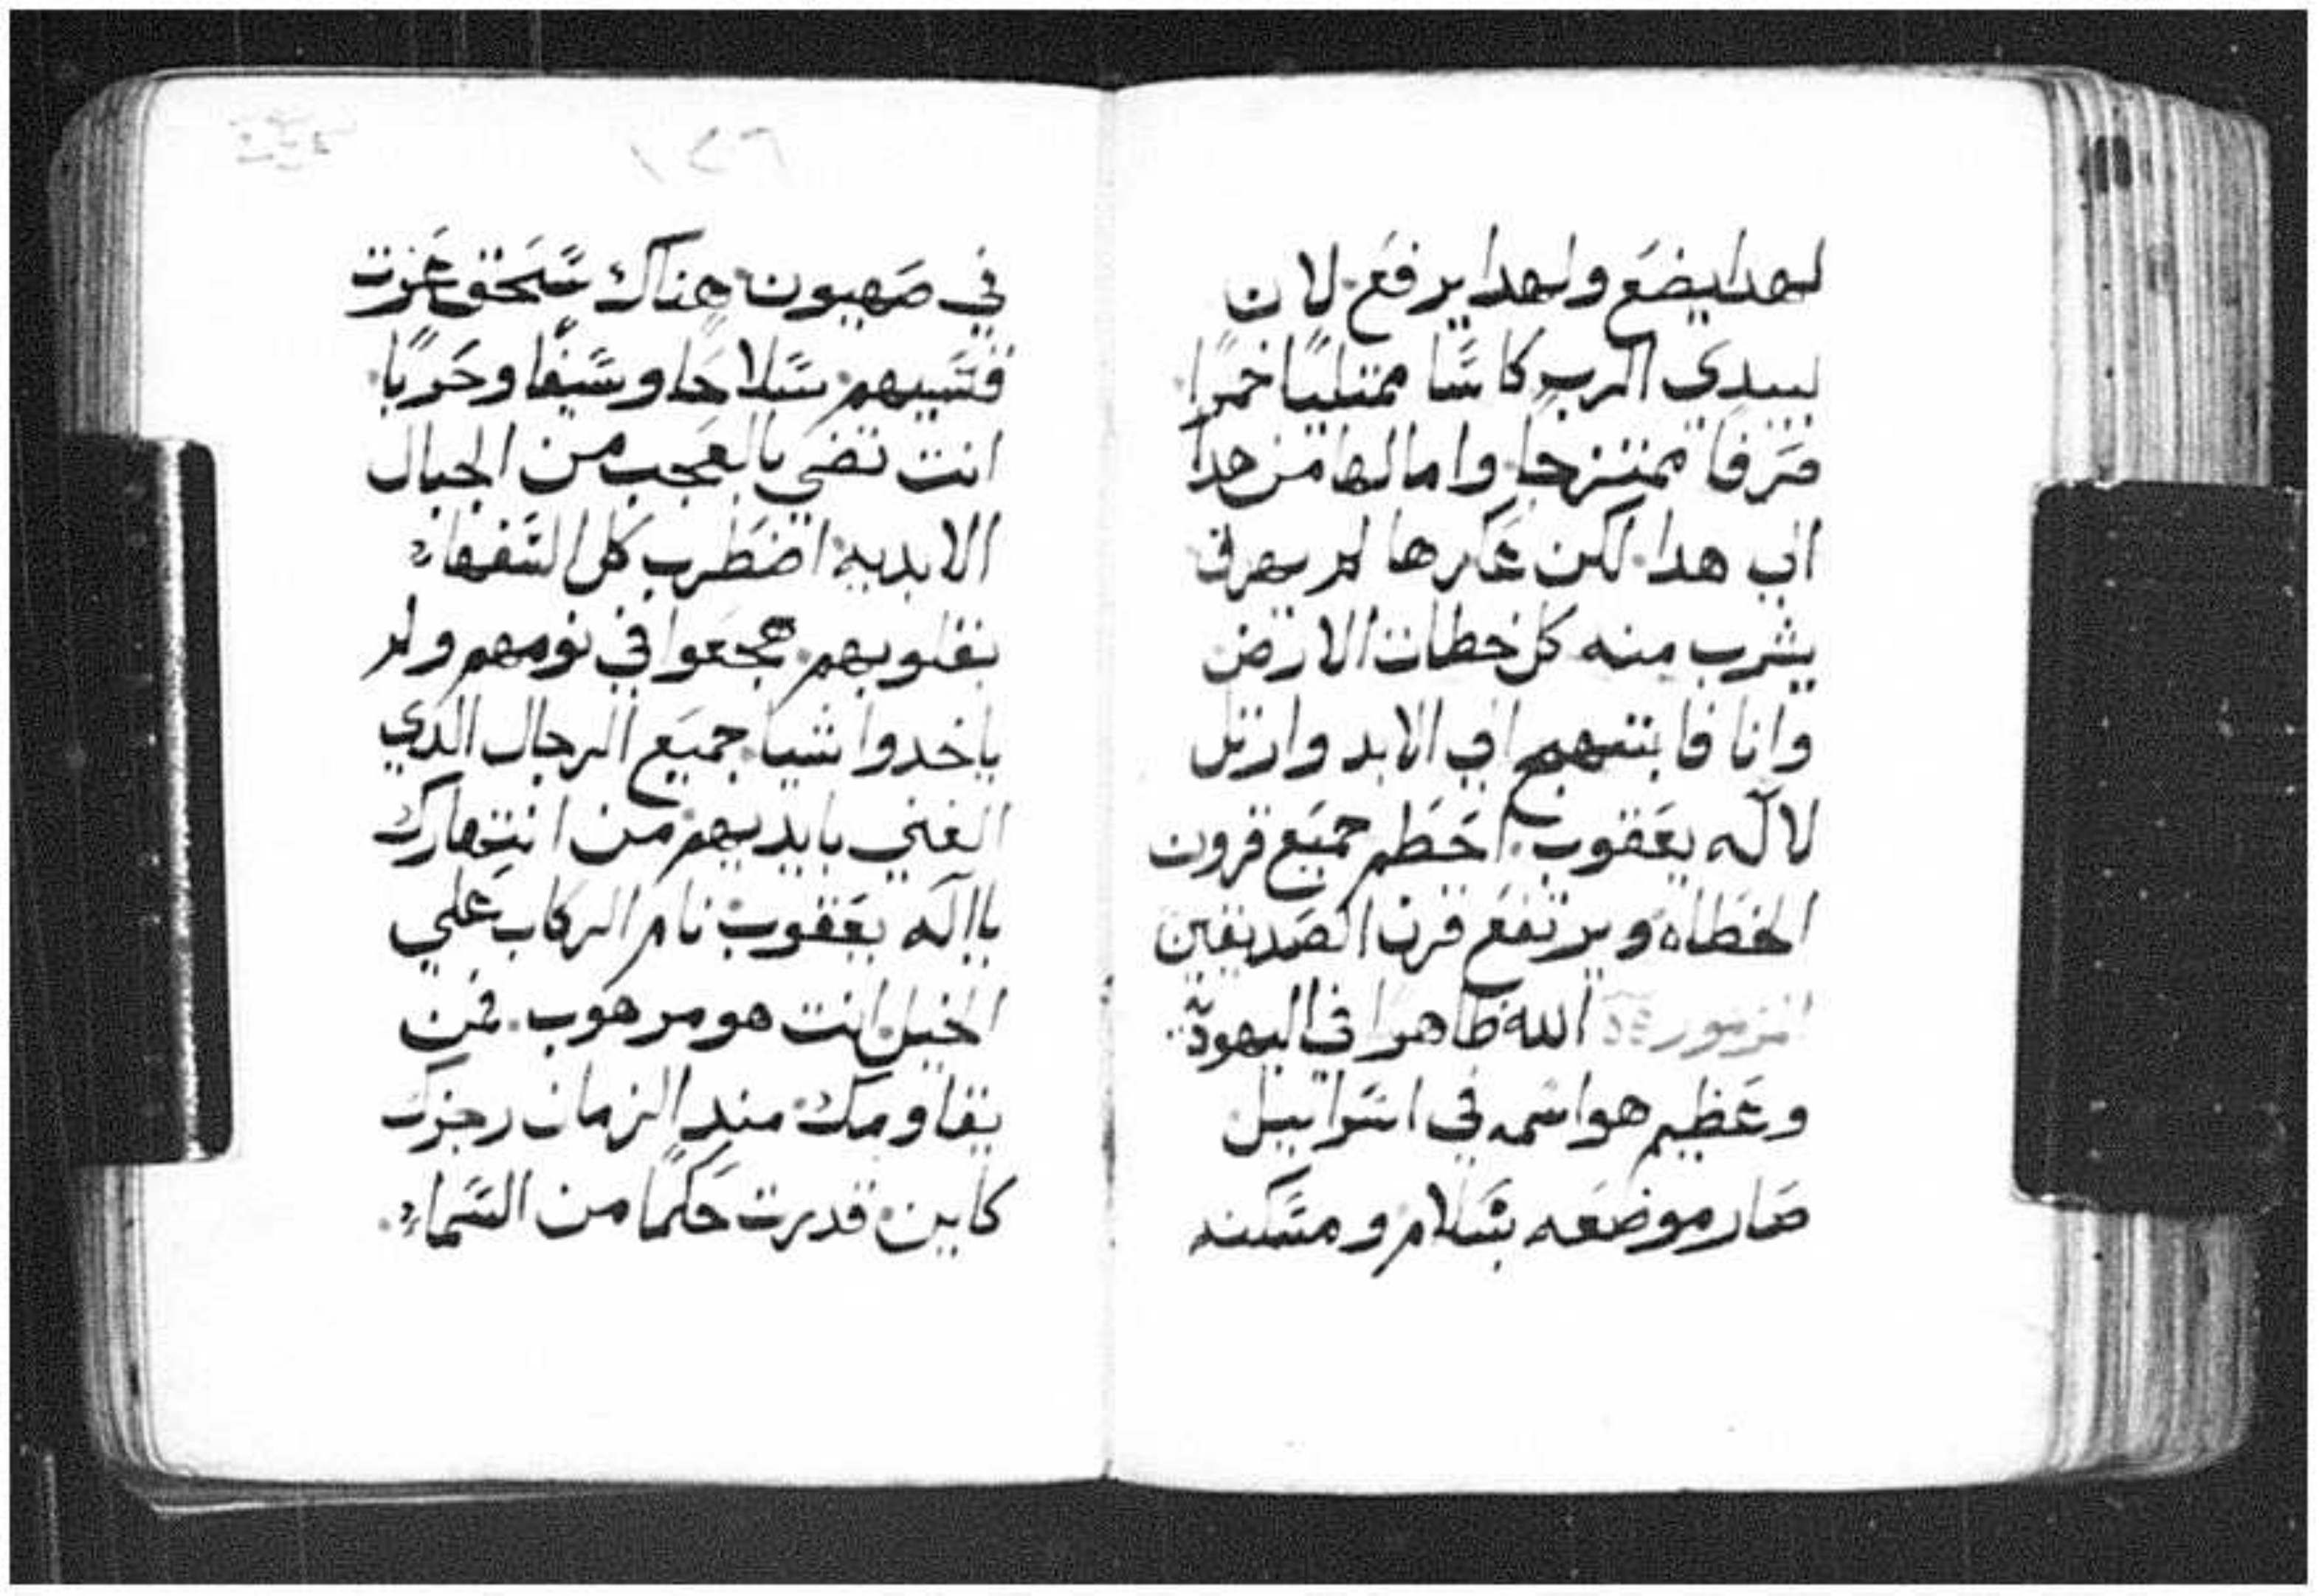 لهدا يضع ولهدا يرفع لان
بيدي الرب كاسًا ممتليًا خمرًا
صرفا ممتزجا واما لها من هدا
الي هدا لكن عكرها لم يهرق
يشرب منه كل خطات الارض
وانا فابتهج الي الابد وارتل
لاله يعقوب احطم جميع قرون
الخطاه ويرتفع قرن الصديقين
المزمور الله ظاهرا في اليهودية
وعظيم هو اسمه في اسراييل
صار موضعه بسلام ومسكنه
في صهيون هناك سحق عزت
قسيهم سلاحا وسيفًا وحربًا
انت تضي بالعجب من الجبال
الابديه اضطرب كل السفهاء
بقلوبهم هجعوا في نومهم ولم
ياخدوا شيا جميع الرجال الدي
الغني بايديهم من انتهارك
ياالٓه يعقوب نام الركاب علي
الخيل انت هو مرهوب فمن
يقاومك مند الزمان رجزك
كاين قدرت حكمًا من السماء